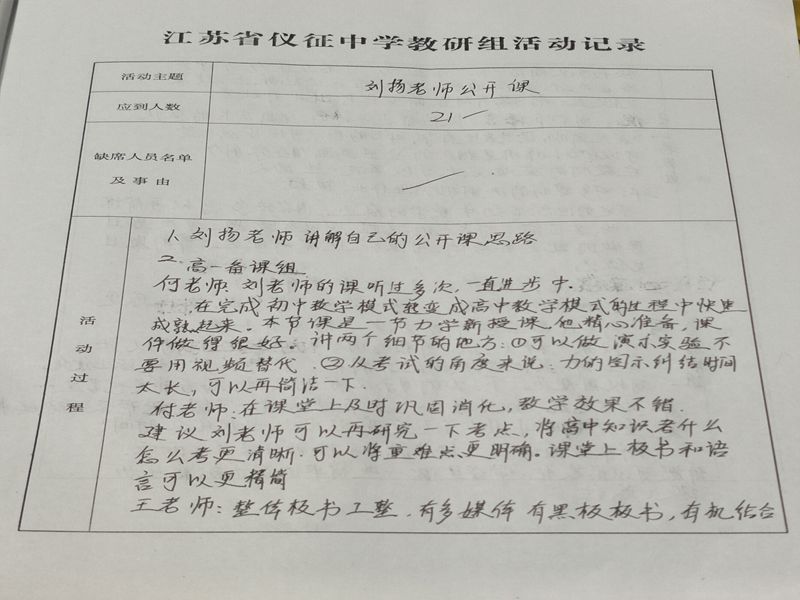 江苏省仪征中学教研组活动记录
活动主题 刘扬老师公开课
应到人数 21
缺席人员名单
及事由
活动过程
1、刘扬老师讲解自己的公开课思路
2、高一备课组
付老师：刘老师的课听过多次，一直进步中.
在完成初中教学模式转变成高中教学模式的过程中快速
成熟起来。本节课是一节力学新授课，他精心准备，课
件做得很好。讲两个细节的地方：①可以做演示实验不
要用视频替代.②从考试的角度来说：力的图示纠结时间
太长，可以再简洁一下.
付老师：在课堂上及时巩固消化，教学效果不错.
建议刘老师可以再研究一下考点，将高中知识考什么
怎么考更清晰.可以将重难点更明确。课堂上板书和语
言可以更精简
王老师：整体板书工整.有多媒体 有黑板板书，有机结合